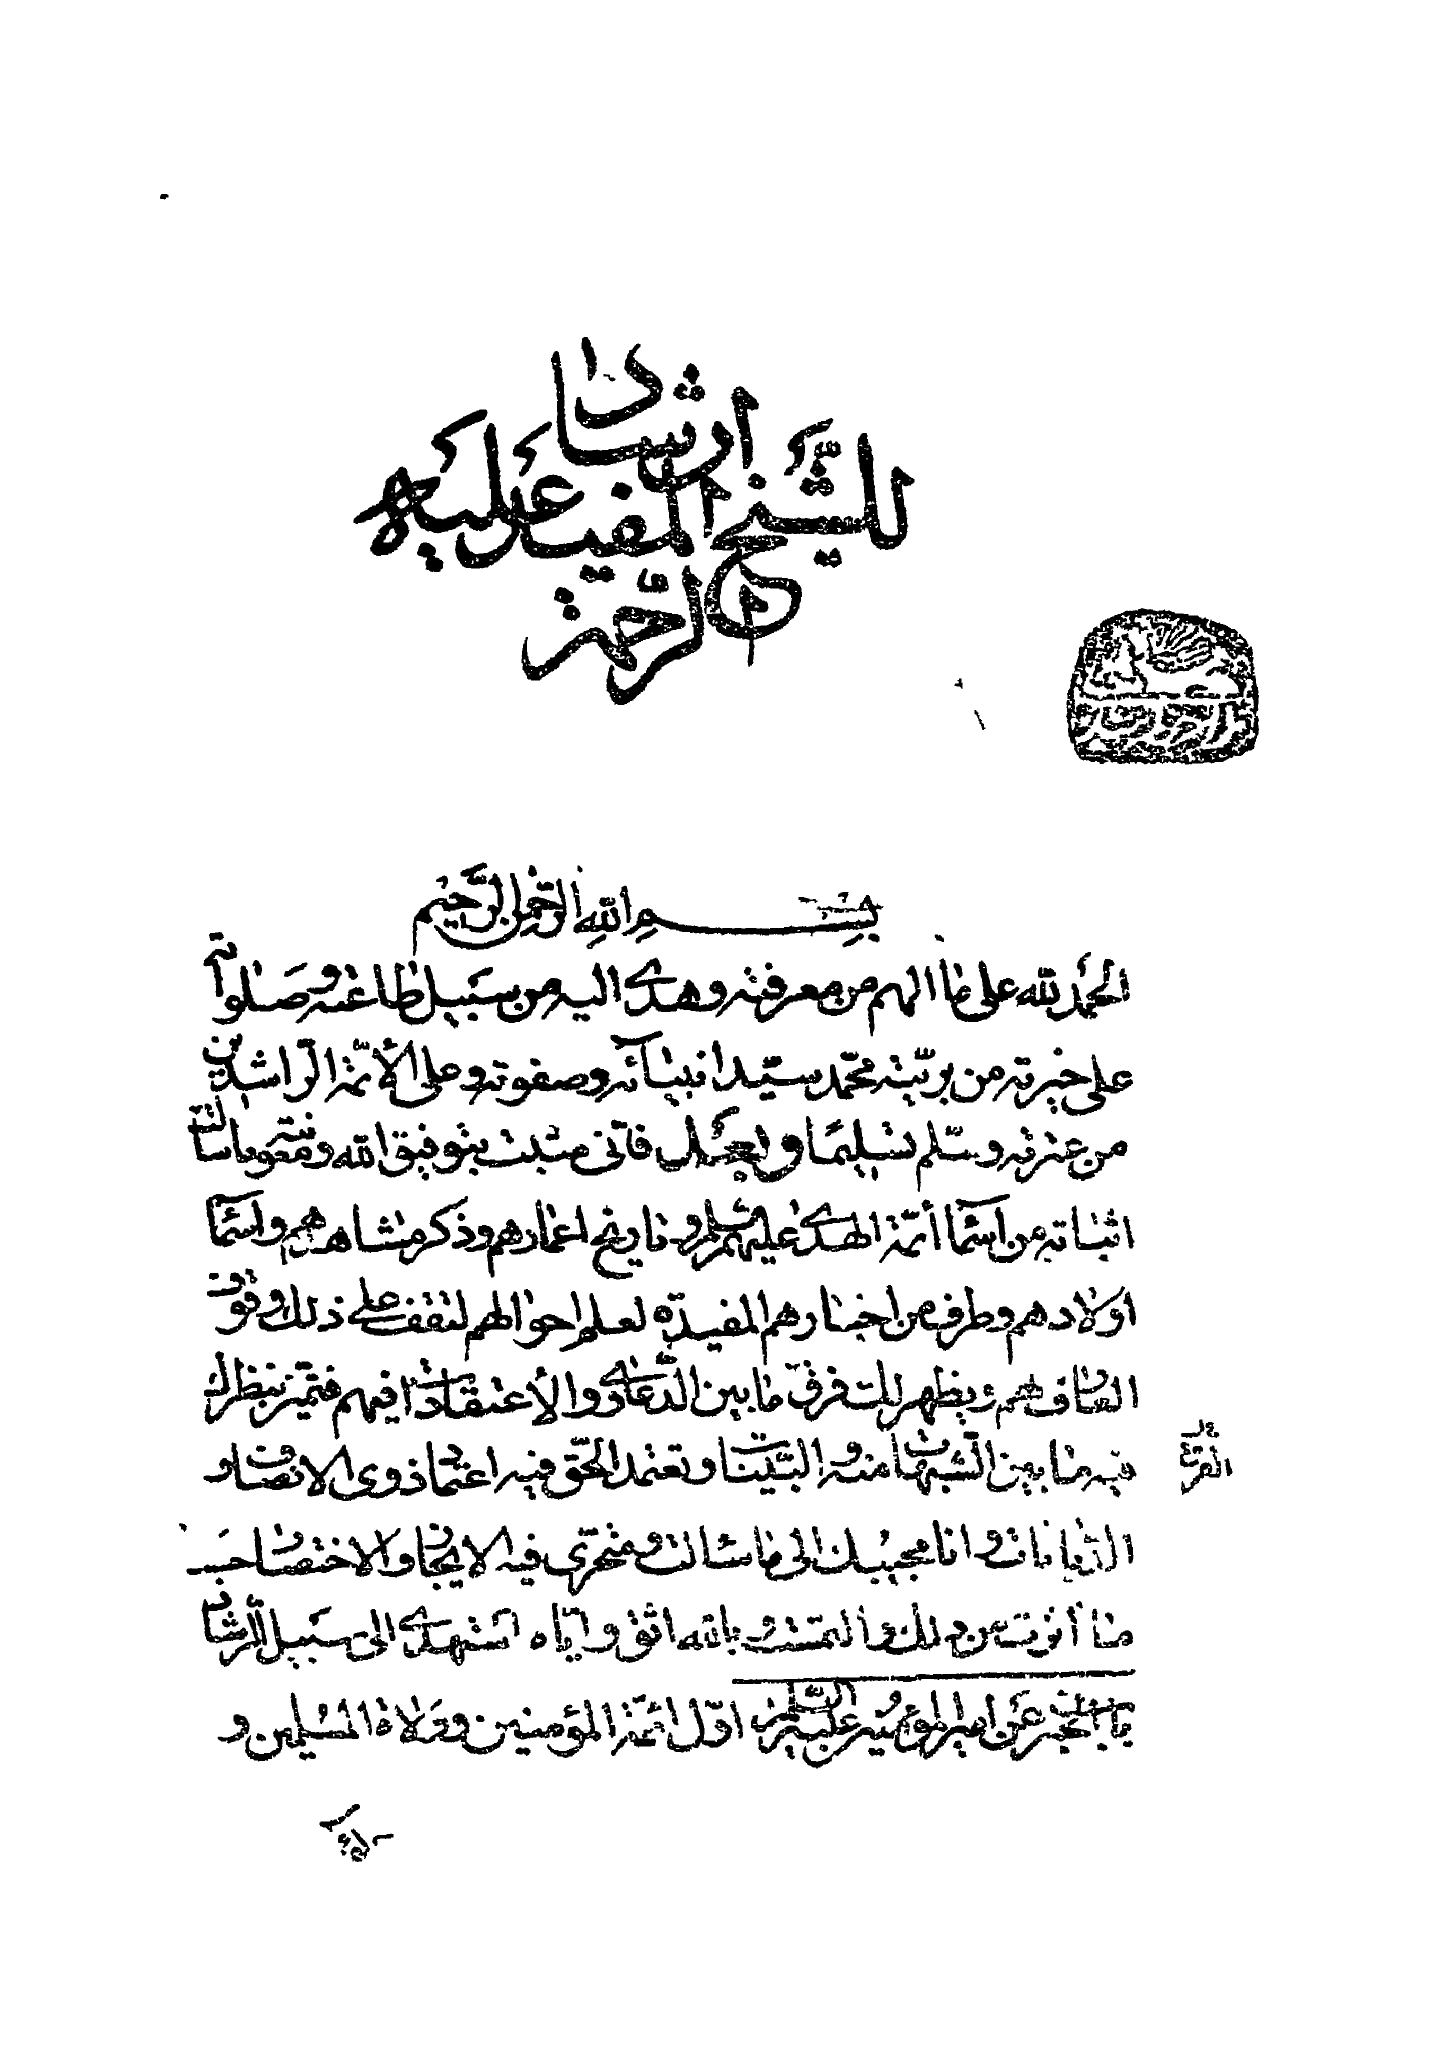 ارشاد
للشيخ المفيد عليه
الرحمة
بسم الله الرحمن الرحيم
الحمد لله على ما الهم من معرفته وهدى اليه من سبيل طاعته وصلواته
على خيرته من بريّته محمّد سيّد انبيائه وصفوته وعلى الأئمّة الرّاشدين
من عترته وسلّم تسليمًا وبعد فانّى مثبت بتوفيق الله ومعونته ما سالت
اثباته من اسماء أئمّة الهدى عليهم السلم وتاريخ اعمارهم وذكر مشاهدهم واسماء
اولادهم وطرف من اخبارهم المفيدة لعلم احوالهم لتقف على ذلك وقوف
العارف بهم ويظهر لك فرق ما بين الدّعاوى والأعتقادات فيهم فتميّز بنظرك
فيه ما بين الشّبهات منه والبيّنات وتعتمد الحقّ فيه اعتماد ذوى الانصاف و
الدّيانات وانا مجيبك الى ما سالت ومتحرّى فيه الايجاز والاختصار حسب
ما أثرت من ذلك والتمست وبالله اثق وايّاه استهدى الى سبيل الرّشاد
باب الخبر عن امير المؤمنين عليه السّلم اوّل ائمّة المؤمنين وولاة المسلمين و